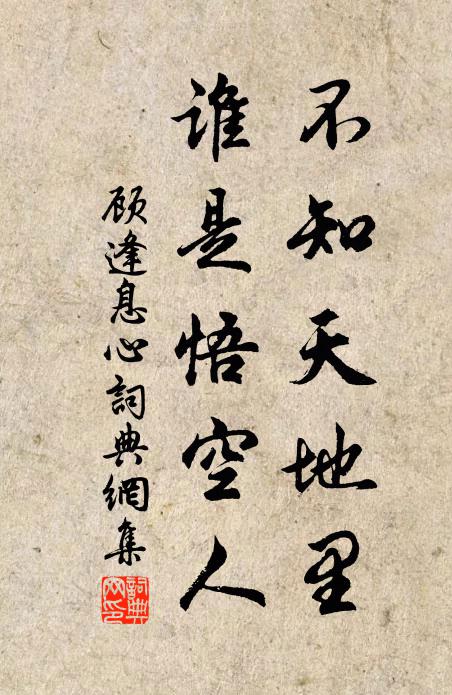 不知天地里
谁是悟空人
顾逢息心詞典網集
詞典
网印